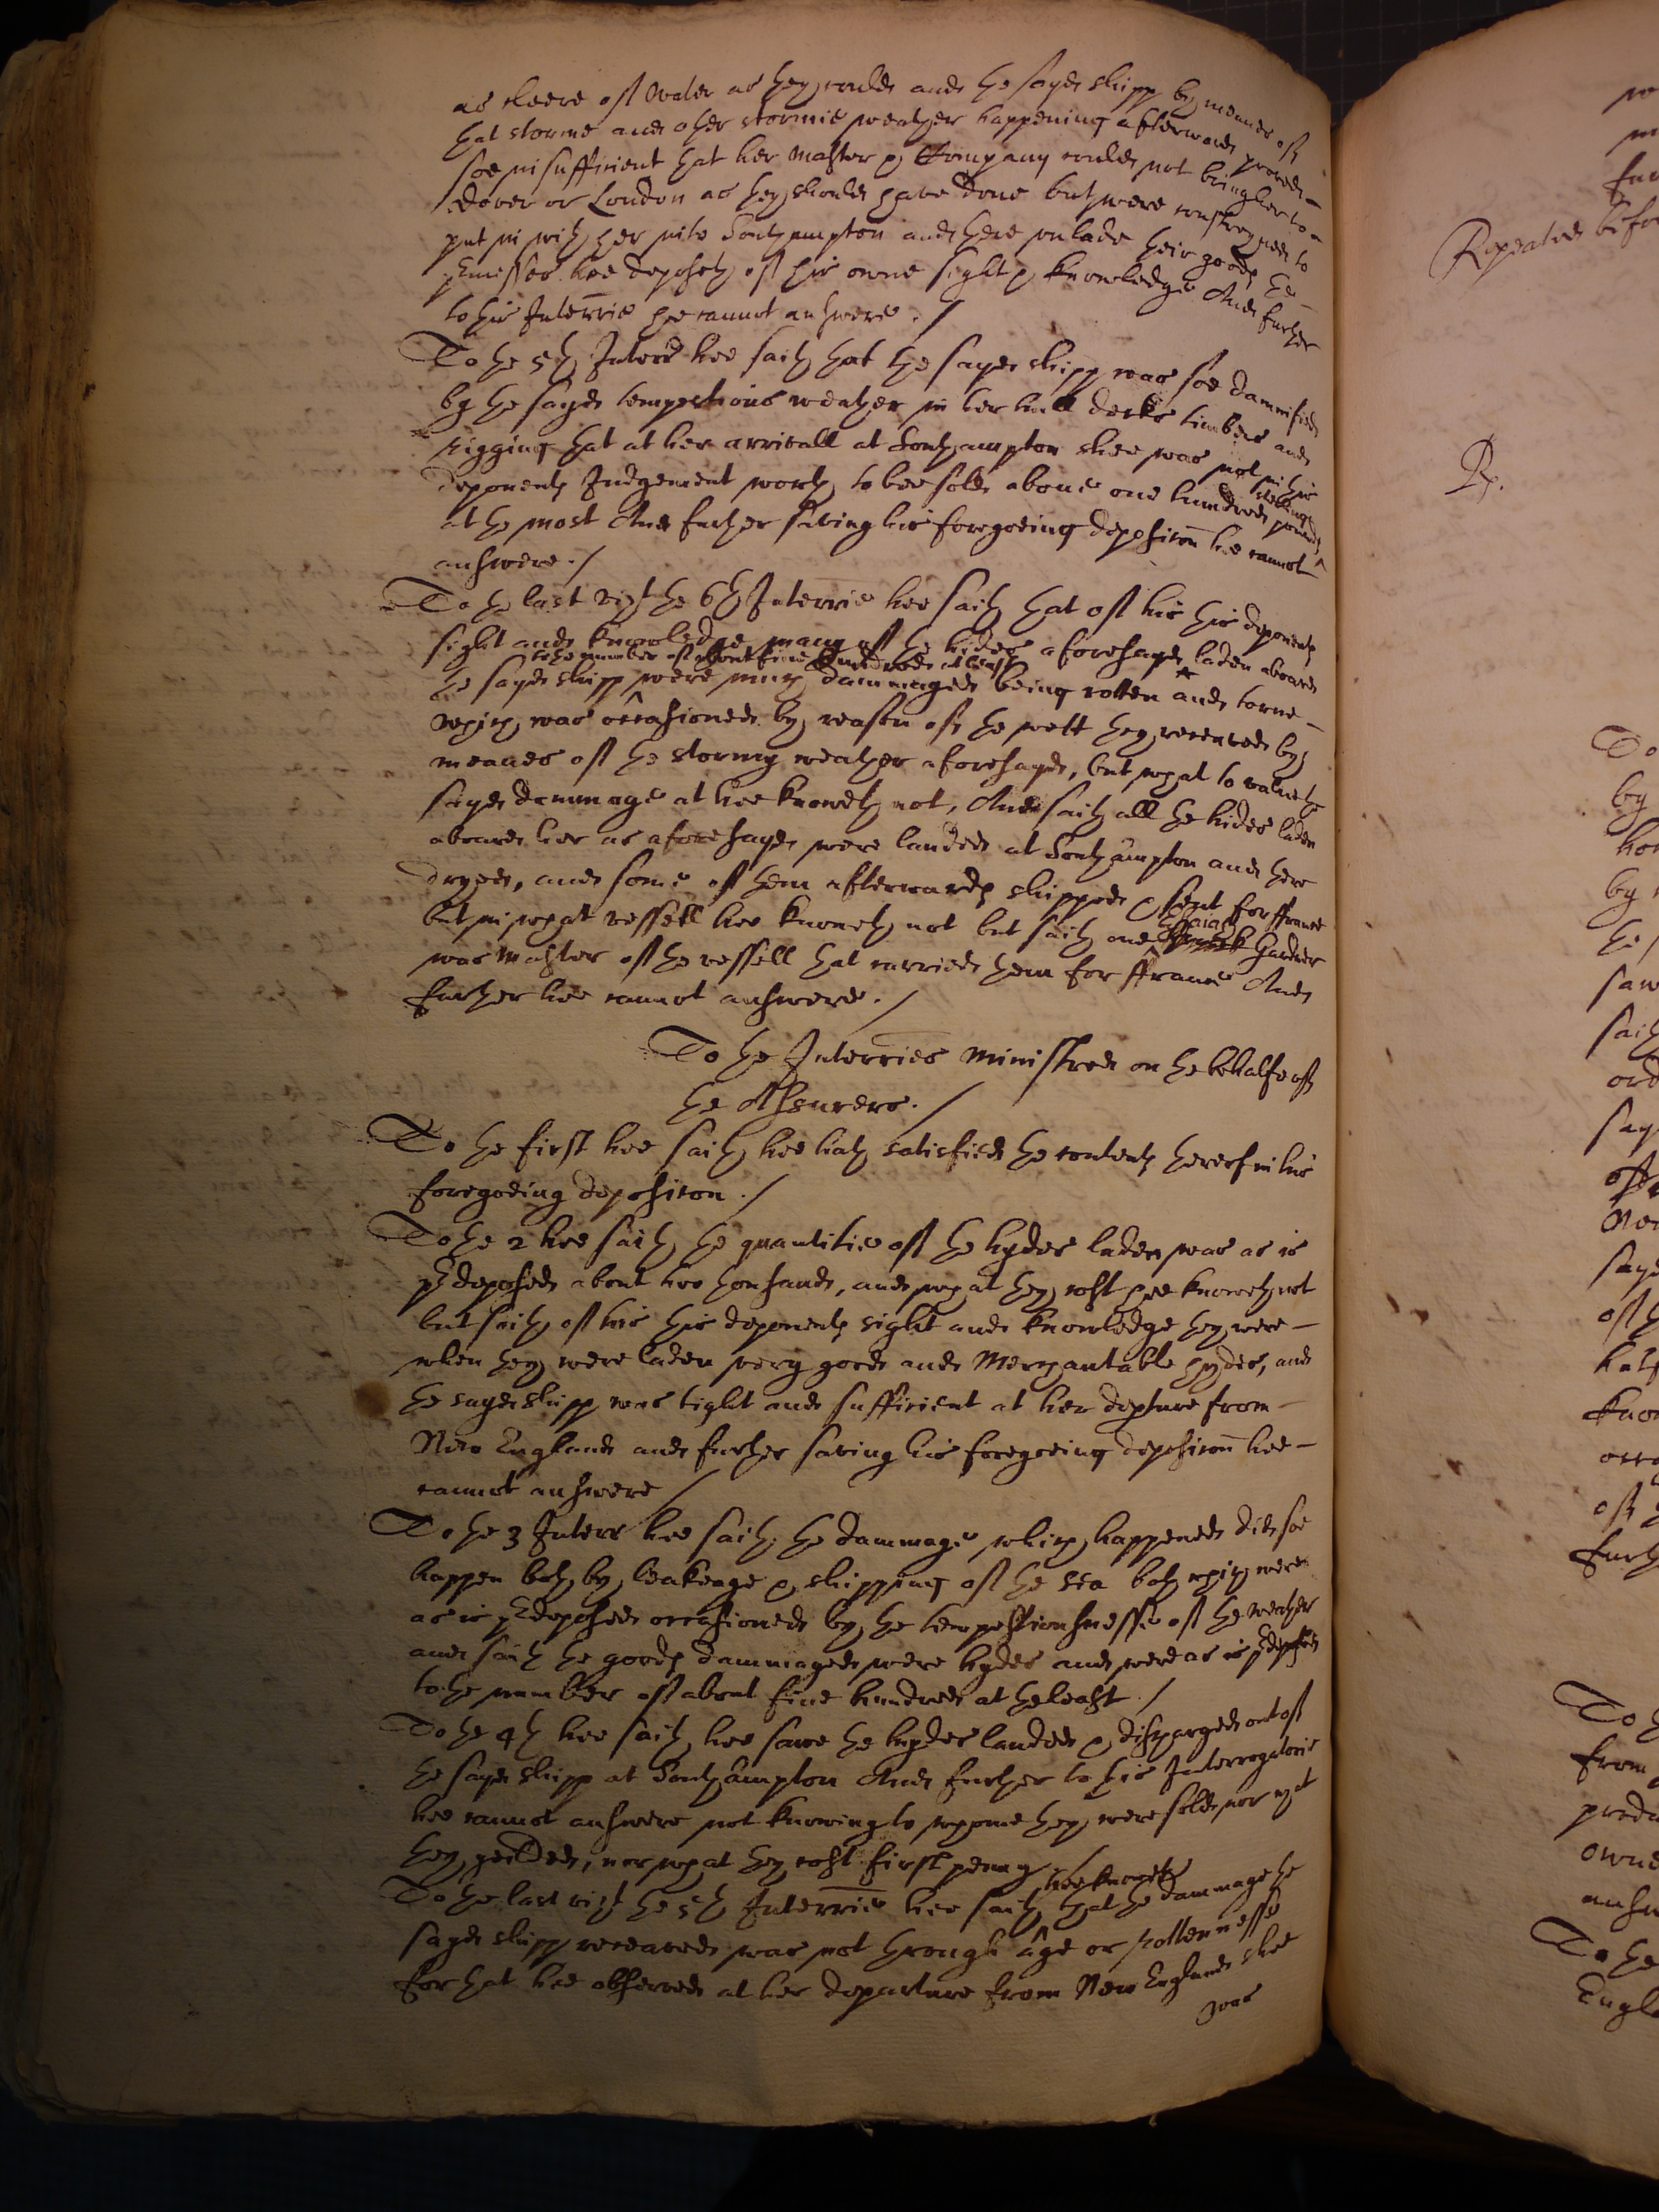 as cleere of water as they coulde and the sayde shipp by meanes of
that storme and other stormie weather happening afterwards proved
soe insufficient that her Master & Company coulde not bring her to
Dover or London as they should have done but were constrayned to
put in with her into Southampton and there unlade their goods the
premisses hee deposeth of his owne sight & knowledge And further
to this Interrie hee cannot answere ./
To the 5th Interr hee saith that the sayde shipp was soe damnified
by the sayde tempestious weather in her hull decks timbers and
rigging that at her arrivall at Southampton shee was not in this
deponents Judgement worth to bee solde above one hundred pounds sterling
at the most And further saving his foregoeing deposicon hee cannot
answere ./
To the last vizt the 6th Interrie hee saith that of his this deponents
sight and knowledge many of the hides aforesayde laden aboard
to the number of about five hundred at least
the sayde shipp were much dammaged being rotten and torne
which was occasioned by reason of the wett they receaved by
meanes of the stormy weather aforesayde, but what to value the
sayde dammage at hee knoweth not, And saith all the hides laden
aboard her as aforesayde were landed at Southampton and there
dryed, and some of them afterwards shipped & sent for ffrance
but in what vessell hee knoweth not but saith one Gardner
was Master of the vessell that carried them for ffrance And
further hee cannot answere ./
To the Interries ministred on the behalfe of
the Assurers ./
To the first hee saith hee hath satisfied the contents thereof in his
foregoeing deposicon ./
To the 2 hee saith the quantitie of the hydes laden was as is
predeposed about two thousand, and what they cost hee knoweth not
but saith of his this deponents sight and knowledge they were
when they were laden very good and Merchantable hydes, and
the sayde shipp was tight and sufficient at her depture from
New England and further saving his foregoeing deposicon hee
cannot answere /
To the 3 Interr hee saith the dammage which happened did soe
happen both by leakage & shipping of the sea both which were
as is predeposed occasioned by the tempestiousnesse of the weather
and saith the goods dammaged were hydes and were as is predeposed
to the number of about five hundred at the least ./
To the 4th hee saith hee sawe the hydes landed & discharged out of
the sayde shipp at Southampton And further to this Interrogatorie
hee cannot answere not knowing to whome they were solde nor what
they yeilded, nor what they cost first penny ./
To the last vizt the 5th Interrie hee saith hee knoweth that the dammage the
sayde shipp receaved was not through age or rottennesse
for that hee observed at her departure from New England shee
was
Repeated befo
To
by
by
saw
saith
ord
say
sayd
of
know
To
from
owne
answ
To the
Engl